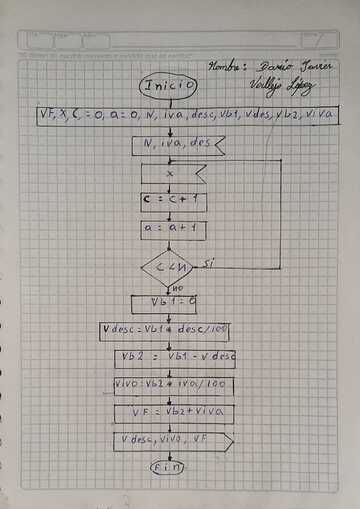 Nombre: Dario Javier
Vallejo López
Inicio
VF, X, C, = 0, a = 0, N, iva, desc, Vb1, Vdes, Vb2, Viva
N, iva, des
x
C = C + 1
a = a + 1
C < N
Si
no
Vb1 = 0
Vdesc = Vb1 * desc/100
Vb2 = Vb1 - Vdesc
Viva: Vb2 * iva/100
VF = Vb2 + Viva
Vdesc, Viva, VF
Fin